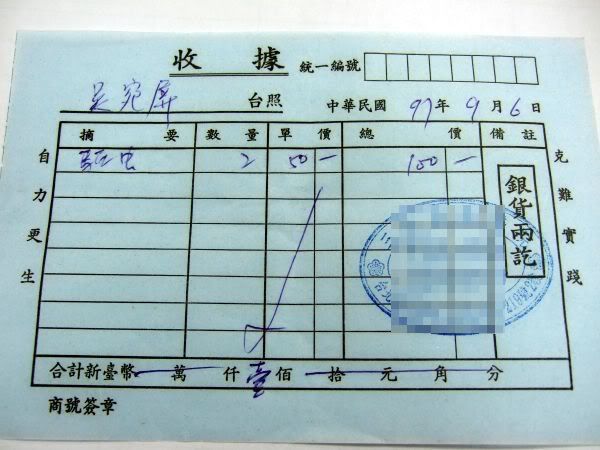 收據 統一編號
吳宛屏 台照 中華民國 97年 9月 6日
摘要 數量 單價 總價 備註
驅虫 2 50— 100—
銀貨兩訖
自力更生
克難實踐
合計新臺幣 萬 仟 壹佰 拾 元 角 分
商號簽章